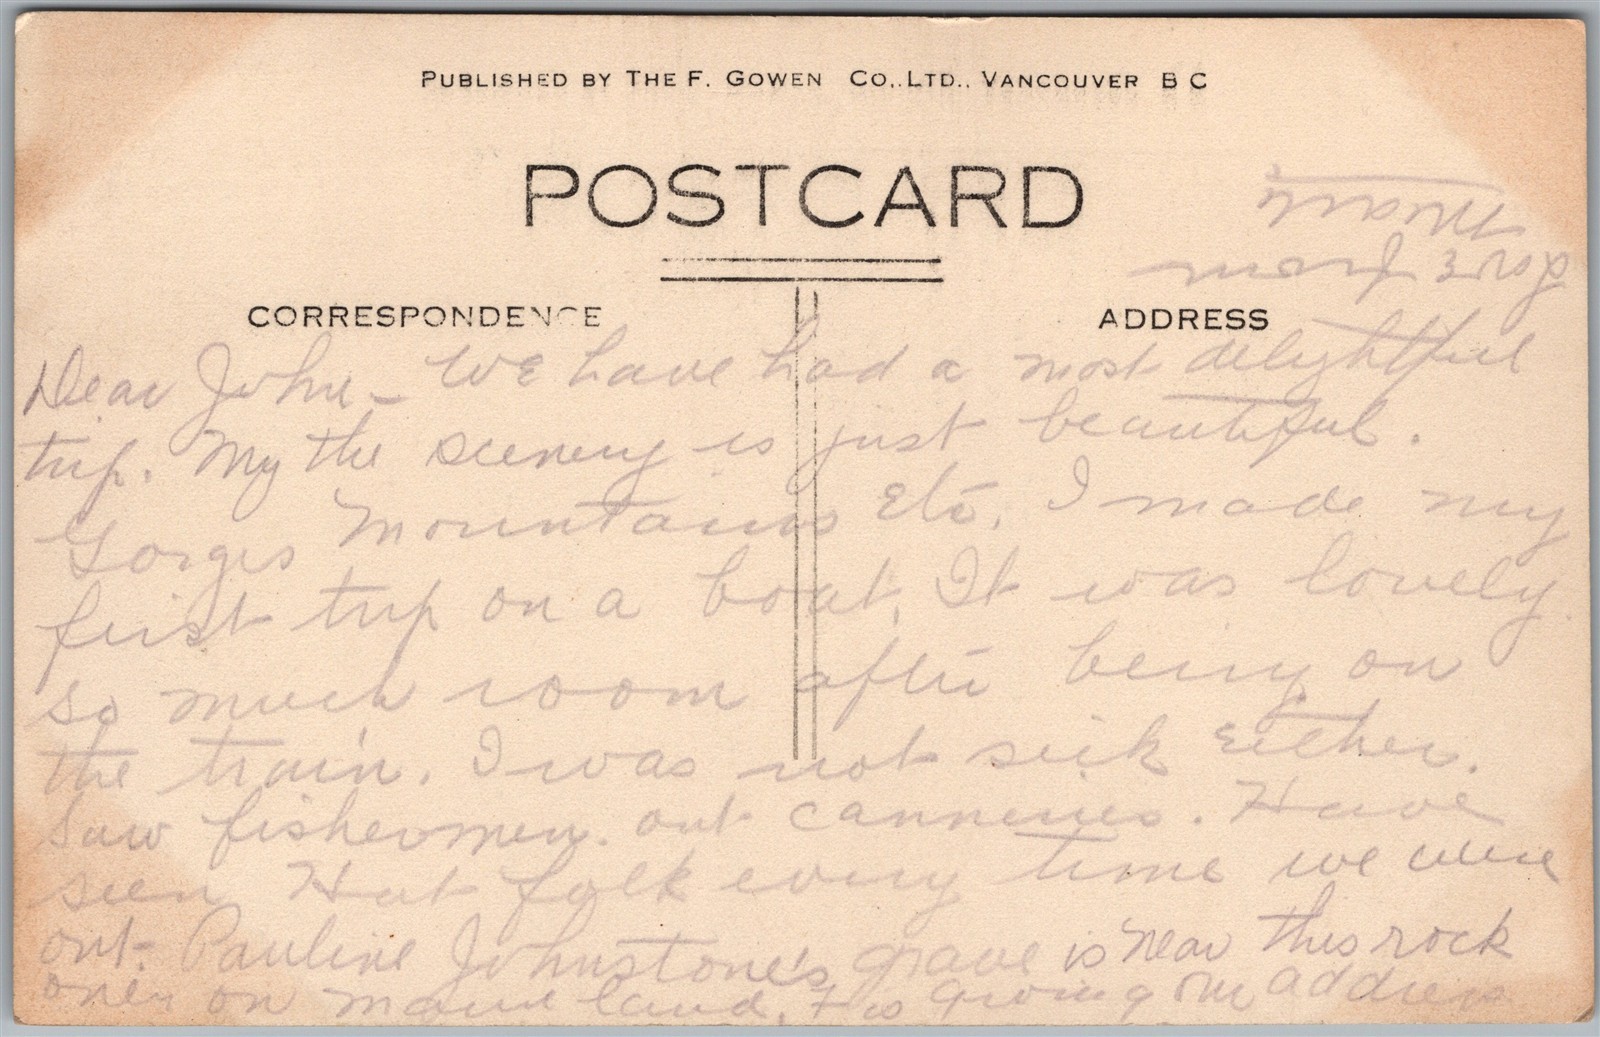 PUBLISHED BY THE F. GOWEN CO., LTD., VANCOUVER B C
POSTCARD
CORRESPONDENCE
ADDRESS
Dear John - We have had a most delightful
trip. My the scenery is just beautiful.
Gorges Mountains Etc. I made my
first trip on a boat. It was lovely
so much room after being on
the train. I was not sick Either.
Saw fishermen. out canneries. Have
seen Hut folk every time we were
out. Pauline Johnstone's grave is near this rock
only on main land.
address
Love From